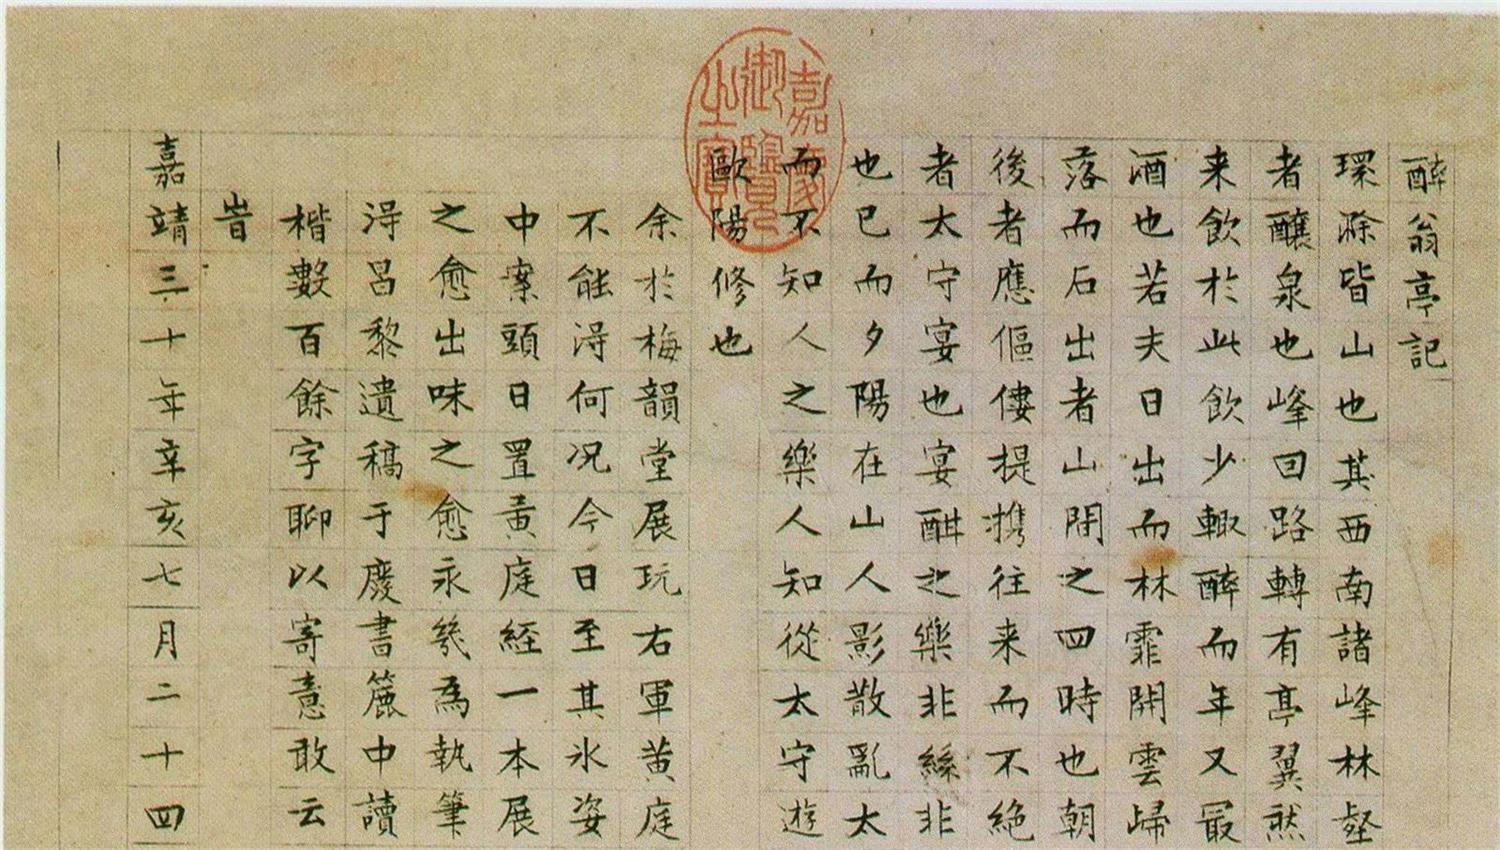 醉翁亭記
環滁皆山也其西南諸峰林壑
者釀泉也峰回路轉有亭翼然
来飲於此飲少輙醉而年又最
酒也若夫日出而林霏開雲歸
落而石出者山間之四時也朝
後者應傴僂提携往来而不絶
者太守宴也宴酣之樂非絲非
也已而夕陽在山人影散亂太
而不知人之樂人知從太守遊
歐陽修也
嘉慶御覽之寶
余於梅韻堂展玩右軍黄庭
不能淂何况今日至其氷姿
中案頭日置黄庭経一本展
之愈出味之愈永幾為執筆
淂昌黎遺稿于廢書簏中讀
楷數百餘字聊以寄意敢云
旹
嘉靖三十年辛亥七月二十四